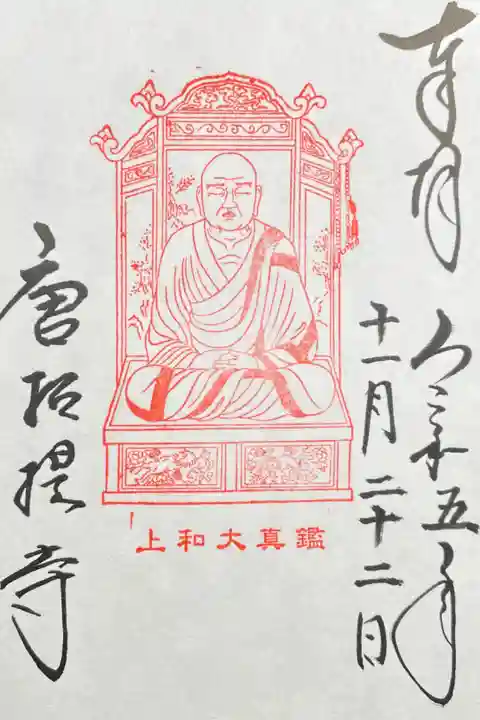 奉拝
令和五年
十一月二十二日
上和大真鑑
唐招提寺